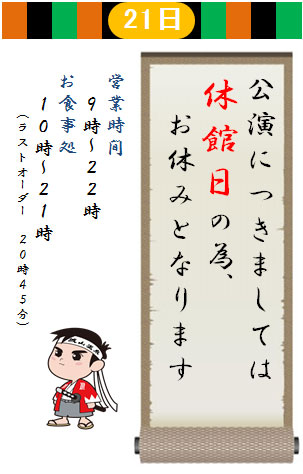 21日
公演につきましては
休館日の為、
お休みとなります
営業時間
9時~22時
お食事処
10時~21時
(ラストオーダー 20時45分)